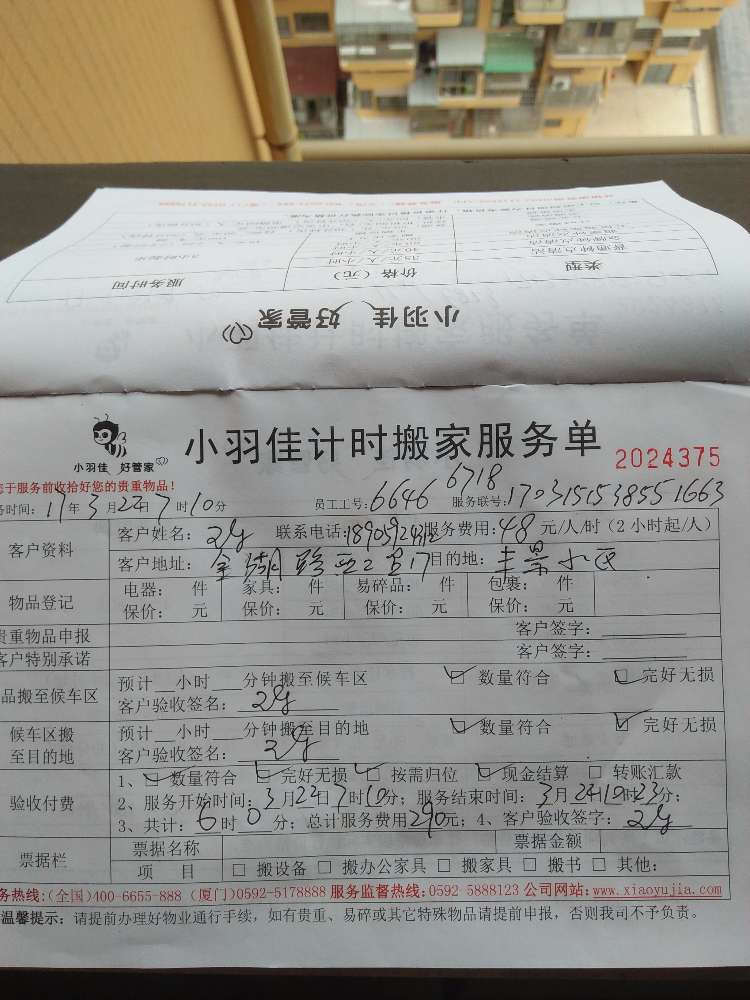 小羽佳 好管家
类型 价格（元） 服务时间
小羽佳 好管家
小羽佳计时搬家服务单
2024375
您于服务前收拾好您的贵重物品！
务时间：17年3月22日7时10分 员工工号：6646 6718 服务联号：
客户资料
客户姓名： 联系电话： 服务费用：48元/人/时（2小时起/人）
客户地址：金湖路 目的地：丰景小区
物品登记
电器： 件 家具： 件 易碎品： 件 包裹： 件
保价： 元 保价： 元 保价： 元 保价： 元
贵重物品申报 客户签字：
客户特别承诺 客户签字：
品搬至候车区
预计__小时__分钟搬至候车区 ☑ 数量符合 ☑ 完好无损
客户验收签名：
候车区搬至目的地
预计__小时__分钟搬至目的地 ☑ 数量符合 ☑ 完好无损
客户验收签名：
验收付费
1、☑ 数量符合 ☑ 完好无损 ☑ 按需归位 ☑ 现金结算 □ 转账汇款
2、服务开始时间：3月22日7时10分；服务结束时间：3月22日10时23分；
3、共计：6时0分；总计服务费用290元；4、客户验收签字：
票据栏
票据名称 票据金额
项 目 □ 搬设备 □ 搬办公家具 □ 搬家具 □ 搬书 □ 其他：
务热线：(全国)400-6655-888 (厦门)0592-5178888 服务监督热线：0592-5888123 公司网站：www.xiaoyujia.com
温馨提示：请提前办理好物业通行手续，如有贵重、易碎或其它特殊物品请提前申报，否则我司不予负责。